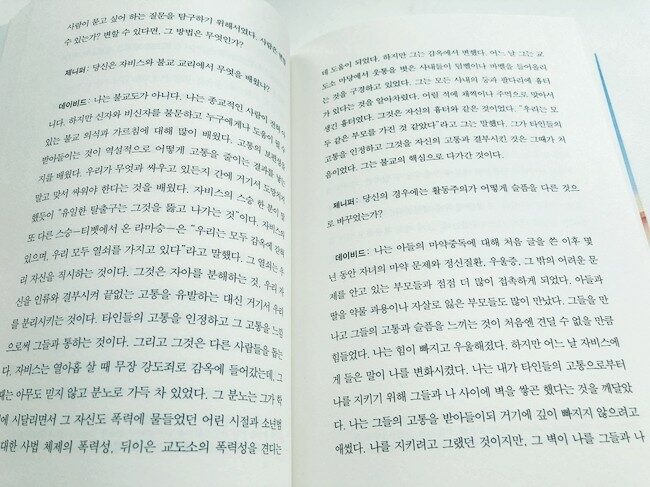 사람이 묻고 싶어 하는 질문을 탐구하기 위해서였다. 사람은 변할
수 있는가? 변할 수 있다면, 그 방법은 무엇인가?
제니퍼: 당신은 자비스와 불교 교리에서 무엇을 배웠나?
데이비드: 나는 불교도가 아니다. 나는 종교적인 사람이 전혀 아
니다. 하지만 신자와 비신자를 불문하고 누구에게나 도움이 될 수
있는 불교 의식과 가르침에 대해 많이 배웠다. 고통의 보편성을
받아들이는 것이 역설적으로 어떻게 고통을 줄이는 결과를 낳는
지를 배웠다. 우리가 무엇과 싸우고 있든지 간에 거기서 도망치지
말고 맞서 싸워야 한다는 것을 배웠다. 자비스의 스승 한 분이 말
했듯이 “유일한 탈출구는 그것을 뚫고 나가는 것”이다. 자비스의
또 다른 스승—티벳에서 온 라마승—은 “우리는 모두 감옥에 갇혀
있으며, 우리 모두 열쇠를 가지고 있다”라고 말했다. 그 열쇠는 우
리 자신을 직시하는 것이다. 그것은 자아를 분해하는 것, 우리 자
신을 인류와 결부시켜 끝없는 고통을 유발하는 대신 거기서 우리
를 분리시키는 것이다. 타인들의 고통을 인정하고 그 고통을 느낌
으로써 그들과 통하는 것이다. 그리고 그것은 다른 사람들을 돕는
다. 자비스는 열아홉 살 때 무장 강도죄로 감옥에 들어갔는데, 그
때는 아무도 믿지 않고 분노로 가득 차 있었다. 그 분노는 그가 학
에 시달리면서 그 자신도 폭력에 물들었던 어린 시절과 소년범
대한 사법 체제의 폭력성, 뒤이은 교도소의 폭력성을 견디는
데 도움이 되었다. 하지만 그는 감옥에서 변했다. 어느 날 그는 교
도소 마당에서 웃통을 벗은 사내들이 덤벨이나 바벨을 들어올리
는 것을 구경하고 있었다. 그는 모든 사내의 등과 팔다리에 흉터
가 있다는 것을 알아차렸다. 어릴 적에 채찍이나 주먹으로 맞아서
생긴 흉터였다. 그것은 자신의 흉터와 같은 것이었다. “우리는 모
두 같은 부모를 가진 것 같았다”라고 그는 말했다. 그가 타인들의
고통을 인정하고 그것을 자신의 고통과 결부시킨 것은 그때가 처
음이었다. 그는 불교의 핵심으로 다가간 것이다.
제니퍼: 당신의 경우에는 활동주의가 어떻게 슬픔을 다른 것으
로 바꾸었는가?
데이비드: 나는 아들의 마약중독에 대해 처음 글을 쓴 이후 몇
년 동안 자녀의 마약 문제와 정신질환, 우울증, 그 밖의 어려운 문
제를 안고 있는 부모들과 점점 더 많이 접촉하게 되었다. 아들과
딸을 약물 과용이나 자살로 잃은 부모들도 많이 만났다. 그들을 만
나고 그들의 고통과 슬픔을 느끼는 것이 처음엔 견딜 수 없을 만큼
힘들었다. 나는 힘이 빠지고 우울해졌다. 하지만 어느 날 자비스에
게 들은 말이 나를 변화시켰다. 나는 내가 타인들의 고통으로부터
나를 지키기 위해 그들과 나 사이에 벽을 쌓곤 했다는 것을 깨달았
다. 나는 그들의 고통을 받아들이되 거기에 깊이 빠지지 않으려고
애썼다. 나를 지키려고 그랬던 것이지만, 그 벽이 나를 그들과 나